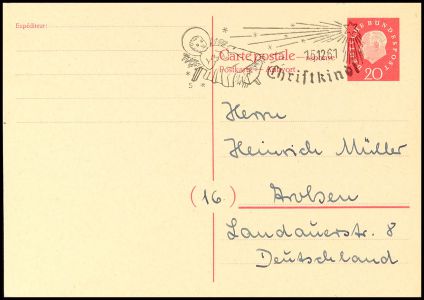 Expéditeur:
Carte postale Réponse
Postkarte Antwort
15.12.60
Christkindl
DEUTSCHE BUNDESPOST
20
Herrn
Heinrich Müller
(16) Arolsen
Landauerstr. 8
Deutschland